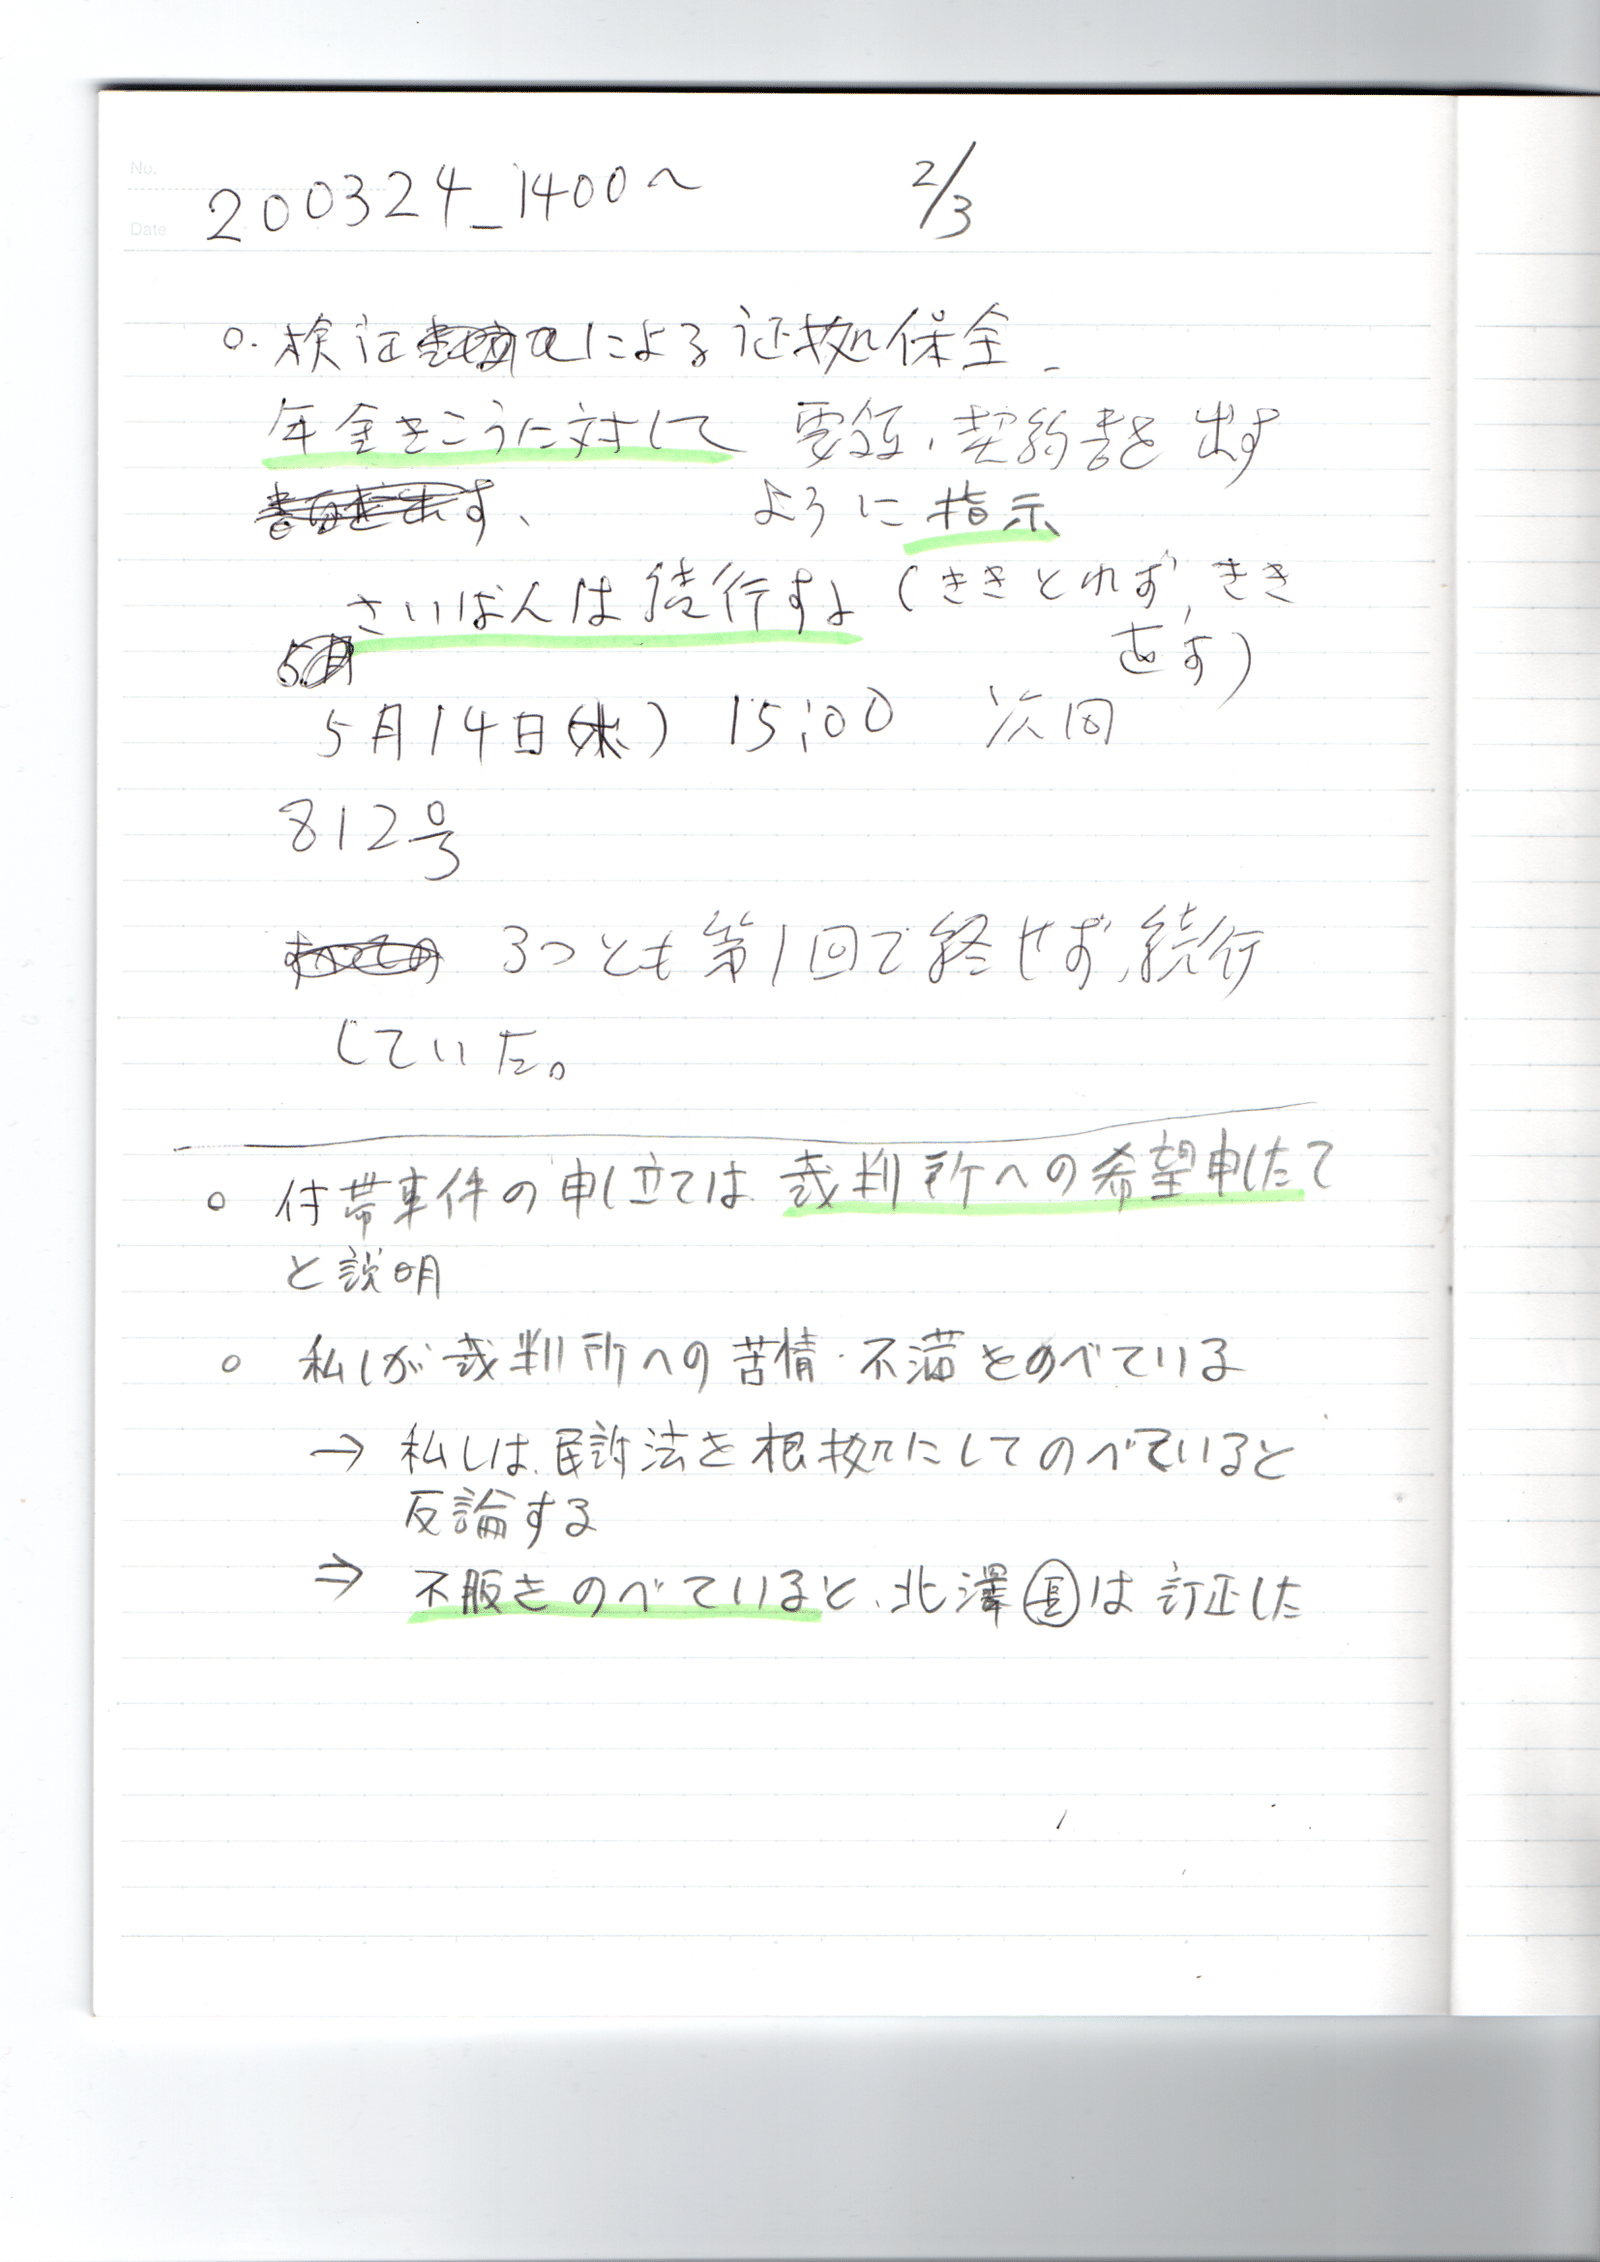 No.
Date
200324_1400~ 2/3
○. 検証による証拠保全
年金きこうに対して 要領、契約書を出す
ように指示
さいばんは続行すよ(ききとれず、きき
直す)
5月14日(木) 15:00 次回
812号
3つとも第1回で終せず、続行
していた。
○ 付帯事件の申し立ては裁判所への希望申したて
と説明
○ 私しが裁判所への苦情・不満をのべている
→ 私しは、民訴法を根拠にしてのべていると
反論する
⇒ 不服をのべていると、北澤は訂正した